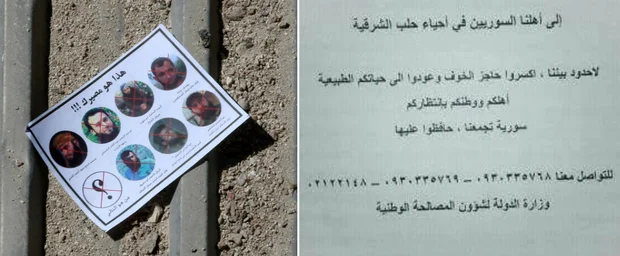 هذا هو مصيرك !!!
؟
من هو التالي
إلى أهلنا السوريين في أحياء حلب الشرقية
لاحدود بيننا ، اكسروا حاجز الخوف وعودوا الى حياتكم الطبيعية
أهلكم ووطنكم بانتظاركم
سورية تجمعنا ، حافظوا عليها
للتواصل معنا ٠٩٣٠٣٣٥٧٦٨ – ٠٩٣٠٣٣٥٧٦٩ – ٠٢١٢٢١٤٨
وزارة الدولة لشؤون المصالحة الوطنية